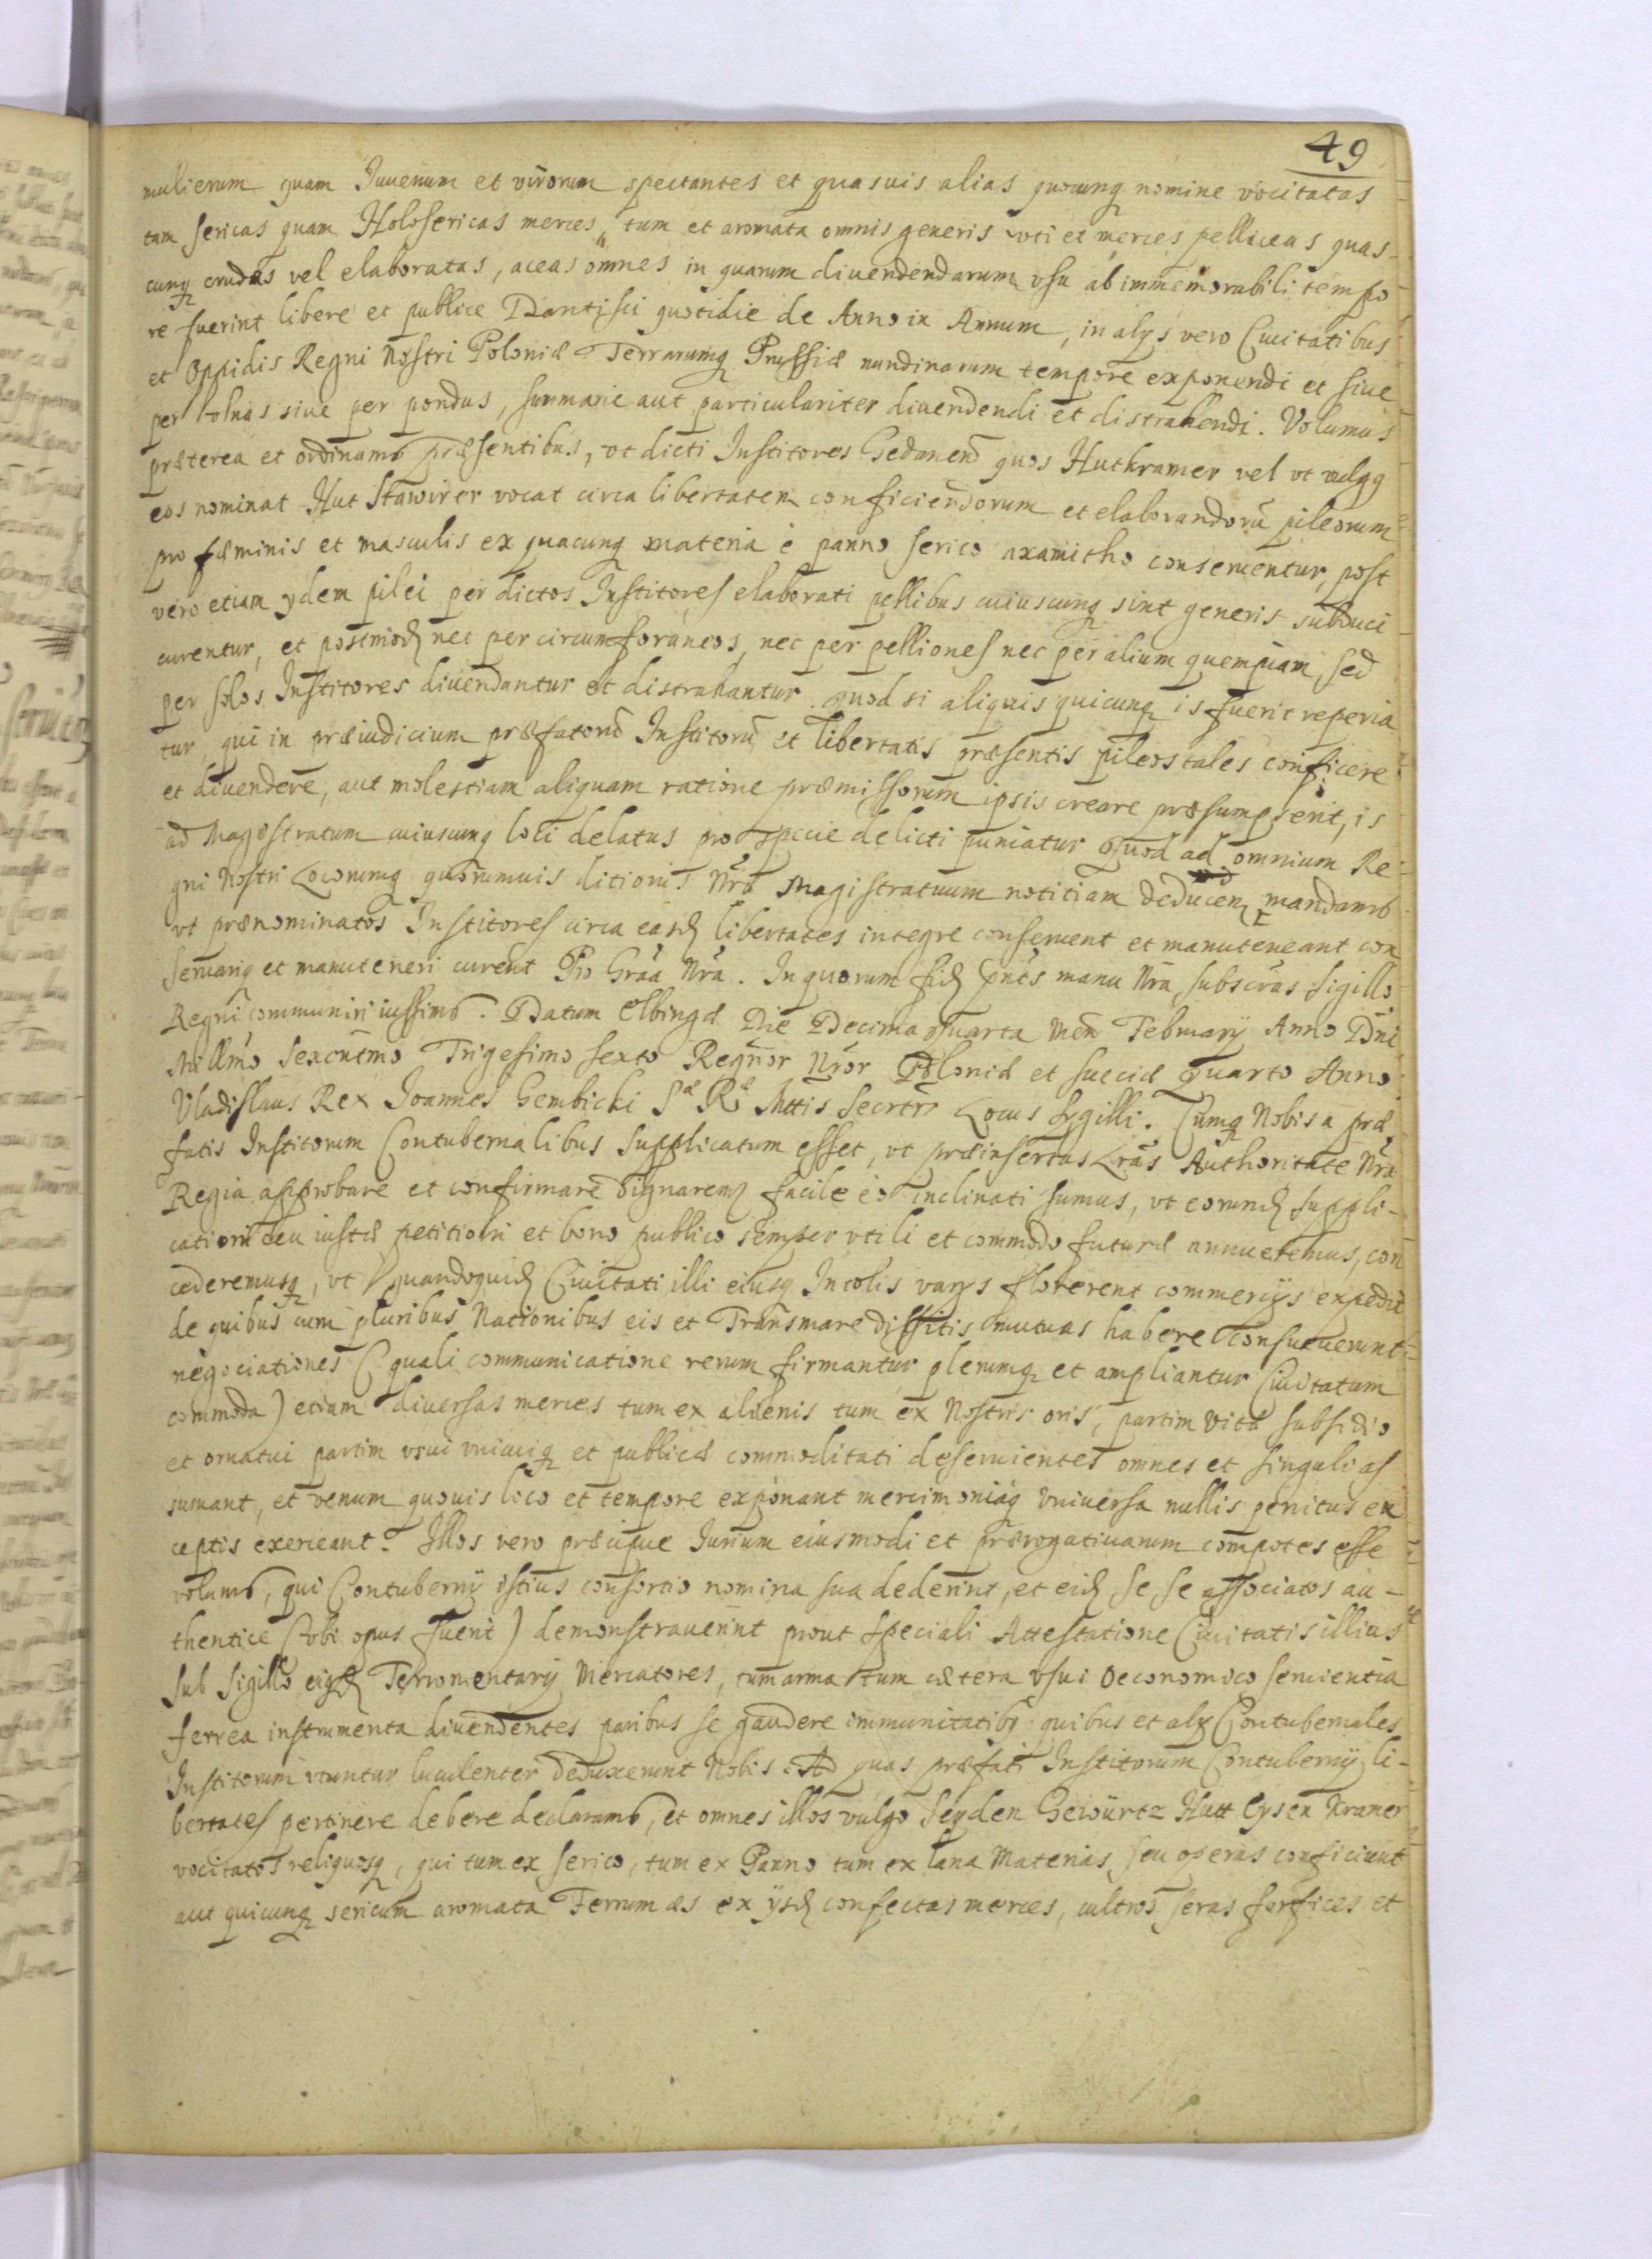 49
mulierum quam Iuuenum et virorum spectantes et quasuis alias quocunq nomine vocitatas
tam sericas quam Holosericas merces, tum et aromata omnis generis vti et merces pelliceas quas-
cunq crudas vel elaboratas, aceas omnes in quarum diuendendarum vsu ab immemorabili tempo
re fuerint libere et publice Dantisci quotidie de Anno in Annum, in alys vero Ciuitatibus
et Oppidis Regni Nostri Poloniæ Terrarumq Prussiæ nundinarum tempore exponendi et siue
per siue per pondus, summarie aut particulariter diuendendi et distrahendi. Volumus
præterea et ordinamus præsentibus, vt dicti Institores Gedanen quos Hutkramer vel vt vulgq
eos nominat Hut Stawirer vocat circa libertatem conficiendorum et elaborandorũ pileorum
pro fæminis et masculis ex quacunq materia è panno serico axamitho conseruentur, post
vero etiam ydem pilei per dictos Institores elaborati pellibus cuiuscunq sint generis subduci
curentur, et postmod nec per circumforaneos, nec per pelliones nec per alium quempiam, sed
per solos Institores diuendantur et distrahantur. quod si aliquis quicunq is fuerit reperia
tur, qui in præiudicium præfatorũ Institorũ et libertatis præsentis pileos tales conficere
et diuendere, aut molestiam aliquam ratione præmissorum ipsis creare præsumpserit, is
ad Magistratum cuiuscunq loci delatus pro specie delicti puniatur Quod ad omnium Re-
gni Nostri Locorumq quorumuis ditionis Nrã Magistratuum notitiam deducen mandamus
vt prænominatos Institores circa easd libertates integre conseruent et manuteneant con
seruariq et manuteneri curent Pro Grãa Nrã. In quorum fid pntes manu Nrã subscrãs sigillo
Regni communiri iussimus. Datum Elbingæ Die Decima quarta Men February Anno Dni
Millmo Sexcntmo Trigesimo sexto Regnor Nror Poloniæ et sueciæ Quarto Anno
Vladislaus Rex Joannes Gembicki Sæ Ræ Mttis Secrtr Locus Sygilli. Cumq Nobis a præ
fatis Institorum Contubernalibus supplicatum esset, vt præinsertas Lrãs Authoritate Nrã
Regia approbare et confirmare dignaremur facile eò inclinati sumus, vt eorund suppli-
cationi ceu iustæ petitioni et bono publico semper vtili et commodo futuræ annueremus, con
cederemusq, vt quandoquid Ciuitati illi eiusq Incolis varys florerent commercijs expedit
de quibus cum pluribus Nationibus eis et Transmare dissitis mutuas habere consueuerunt
negociationes (quali communicatione rerum firmantur plerumq et ampliantur Ciuitatum
commoda) etiam diuersas merces tum ex alienis tum ex Nostris oris, partim vitæ subsidio
et ornatui partim vsui vnicuiq et publicæ commoditati deseruientes omnes et singuli as
sumant, et venum quouis loco et tempore exponant mercimoniaq vniuersa nullis penitus ex
ceptis exerceant. Illos vero præcipue Iurium eiusmodi et prærogatiuarum compotes esse
volumus, qui Contubernij istius consortio nomina sua dederint, et eid se se associatos au-
thentice (vbi opus fuerit) demonstrauerint prout speciali Attestatione Ciuitatis illius
sub Sigillo eiusd Ferromentarij Mercatores, tum arma tum cætera vsui Oeconomico seruientia
ferrea instrumenta diuendentes paribus se gaudere immunitatibus quibus et aly Contubernales
Institorum vtuntur luculenter deduxerunt Nobis. Ad quas præfati Institorum Contubernij li-
bertates pertinere debere declaramus, et omnes illos vulgo Seyden Gewürtz Hutt Eysen Kramer
vocitatos reliquosq, qui tum ex serico, tum ex Panno tum ex lana Materias, seu operas conficiunt
aut quicunq sericum aromata Ferrum æs ex ysd confectas merces, cultros seras forfices et